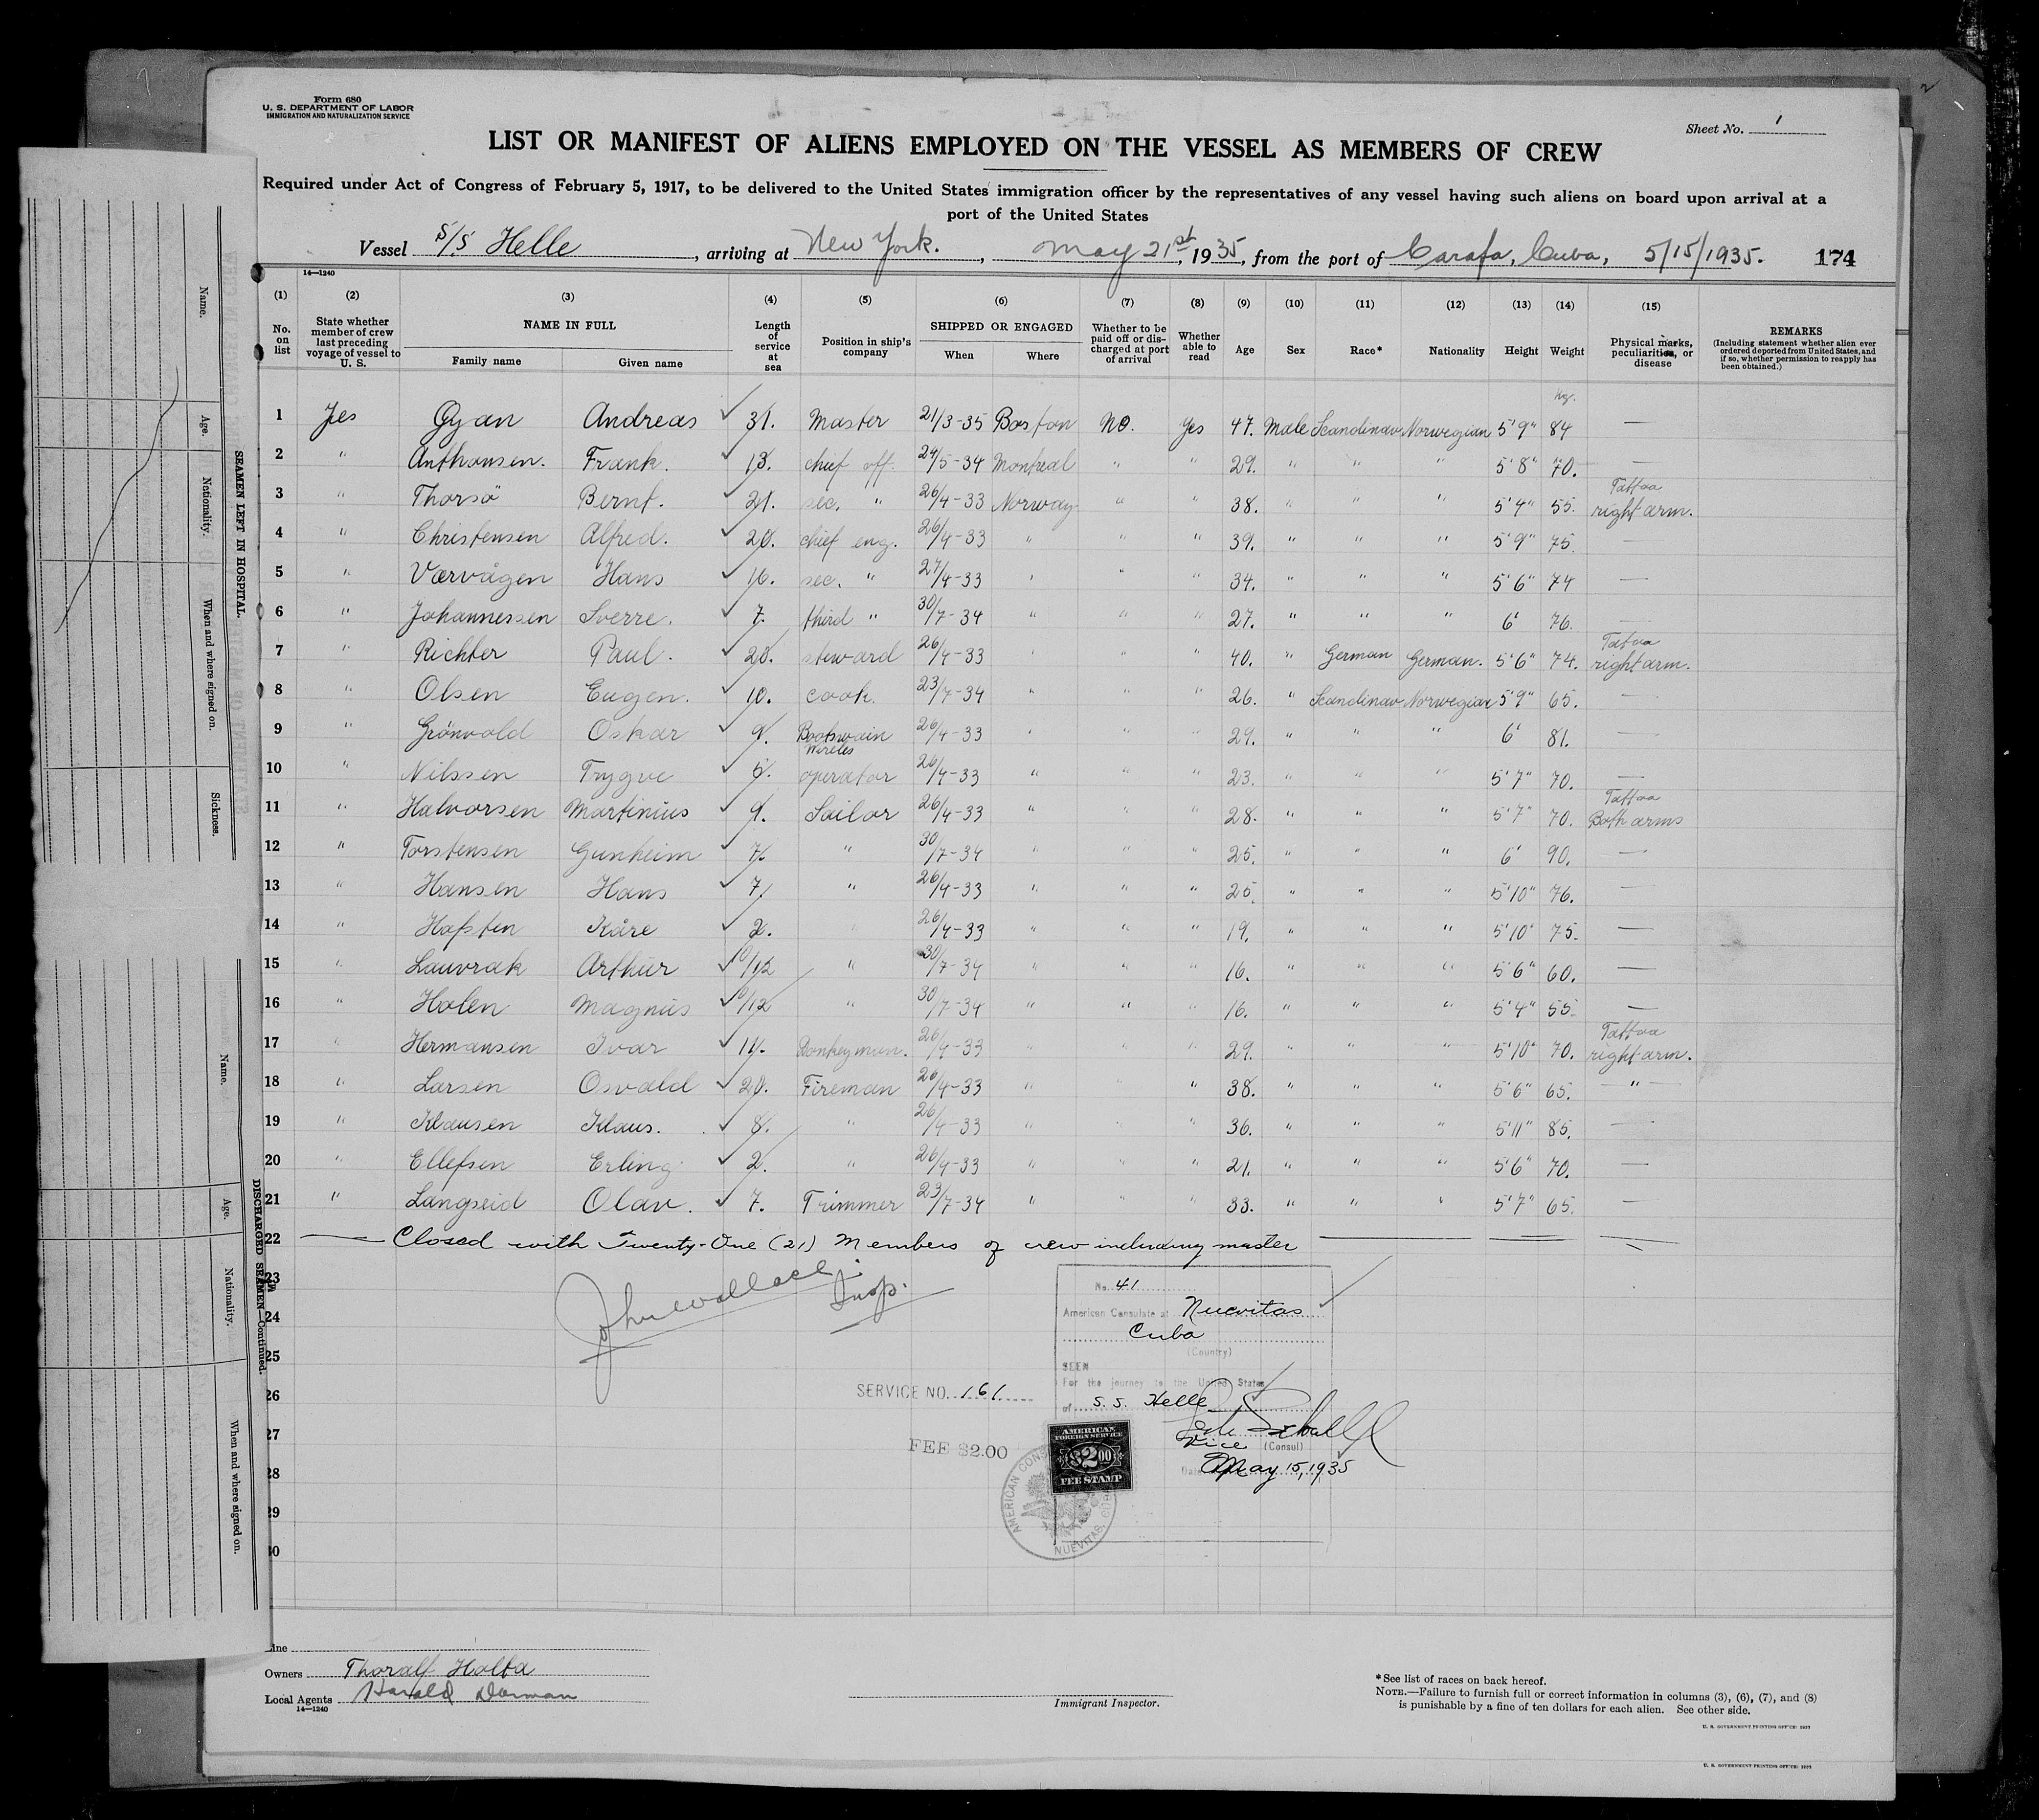 Form 680
U. S. DEPARTMENT OF LABOR
IMMIGRATION AND NATURALIZATION SERVICE
Sheet No. 1
LIST OR MANIFEST OF ALIENS EMPLOYED ON THE VESSEL AS MEMBERS OF CREW
Required under Act of Congress of February 5, 1917, to be delivered to the United States immigration officer by the representatives of any vessel having such aliens on board upon arrival at a
port of the United States
Vessel S/S Helle, arriving at New York., May 21st, 1935, from the port of Carafa, Cuba, 5/15/1935. 174
14—1240
(1) (2) (3) (4) (5) (6) (7) (8) (9) (10) (11) (12) (13) (14) (15)
No. on list
State whether member of crew last preceding voyage of vessel to U. S.
NAME IN FULL
Family name Given name
Length of service at sea
Position in ship's company
SHIPPED OR ENGAGED
When Where
Whether to be paid off or discharged at port of arrival
Whether able to read
Age Sex Race* Nationality Height Weight
Physical marks, peculiarities, or disease
REMARKS
(Including statement whether alien ever ordered deported from United States, and if so, whether permission to reapply has been obtained.)
kg.
1 Yes Gjan Andreas 31. Master 21/3-35 Boston No. Yes 47. Male Scandinav Norwegian 5'9" 84 —
2 " Anthonsen. Frank. 13. chief off. 24/5-34 Montreal " " 29. " " " 5'8" 70. —
3 " Thorsö Bernt. 21. sec. " 26/4-33 Norway " " 38. " " " 5'4" 55. Tattoo right arm.
4 " Christensen Alfred. 20. chief eng. 26/4-33 " " " 39. " " " 5'9" 75. —
5 " Værvågen Hans 16. sec. " 27/4-33 " " " 34. " " " 5'6" 74 —
6 " Johannessen Sverre. 7. third " 30/7-34 " " " 27. " " " 6' 76. —
7 " Richter Paul. 20. steward 26/4-33 " " " 40. " German German. 5'6" 74. Tattoo right arm.
8 " Olsen Eugen. 10. cook. 23/7-34 " " " 26. " Scandinav Norwegian 5'9" 65. —
9 " Grönvold Oskar 9. Bootswain 26/4-33 " " " 29. " " " 6' 81. —
10 " Nilssen Trygve 5. Wireles operator 26/4-33 " " " 23. " " " 5'7" 70. —
11 " Halvorsen Martinius 9. Sailor 26/4-33 " " " 28. " " " 5'7" 70. Tattoo Both arms
12 " Torstensen Gunheim 7. " 30/7-34 " " " 25. " " " 6' 90. —
13 " Hansen Hans 7. " 26/4-33 " " " 25. " " " 5'10" 76. —
14 " Hafsten Kåre 2. " 26/4-33 " " " 19. " " " 5'10" 75. —
15 " Lauvrak Arthur 10/12 " 30/7-34 " " " 16. " " " 5'6" 60. —
16 " Holen Magnus /12 " 30/7-34 " " " 16. " " " 5'4" 55. —
17 " Hermansen Ivar 14. Donkeyman. 26/4-33 " " " 29. " " " 5'10" 70. Tattoo right arm.
18 " Larsen Osvald 20. Fireman 26/4-33 " " " 38. " " " 5'6" 65. — " —
19 " Klausen Klaus. 8. " 26/4-33 " " " 36. " " " 5'11" 85. —
20 " Ellefsen Erling 2. " 26/4-33 " " " 21. " " " 5'6" 70. —
21 " Langseid Olav. 7. Trimmer 23/7-34 " " " 33. " " " 5'7" 65. —
22 — Closed with Twenty-One (21) Members of crew including master
23
24
25
26
27
28
29
30
John Wallace Insp.
No. 41
American Consulate at Nuevitas
Cuba
(Country)
SEEN
For the journey to the United States
of S. S. Helle
Vice (Consul)
Date May 15, 1935
SERVICE NO. 161
FEE $2.00
AMERICAN FOREIGN SERVICE
$2.00
FEE STAMP
AMERICAN CONSUL
NUEVITAS,
Owners Thoralf Holta
Local Agents Harald Dorman
14—1240
Immigrant Inspector.
*See list of races on back hereof.
NOTE.—Failure to furnish full or correct information in columns (3), (6), (7), and (8)
is punishable by a fine of ten dollars for each alien. See other side.
U. S. GOVERNMENT PRINTING OFFICE:
U. S. GOVERNMENT PRINTING OFFICE:
SEAMEN LEFT IN HOSPITAL.
Name.
Age.
Nationality.
When and where signed on.
Sickness.
DISCHARGED SEAMEN—Continued.
Name.
Age.
Nationality.
When and where signed on.